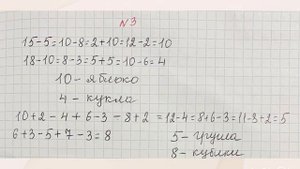 №3
15-5=10-8=2+10=12-2=10
18-10=8-3=5+5=10-6=4
10-яблоко
4-кукла
10+2-4+6-3-8+2=12-4=8+6-3=11-8+2=5
6+3-5+7-3=8
5-груша
8-кубики